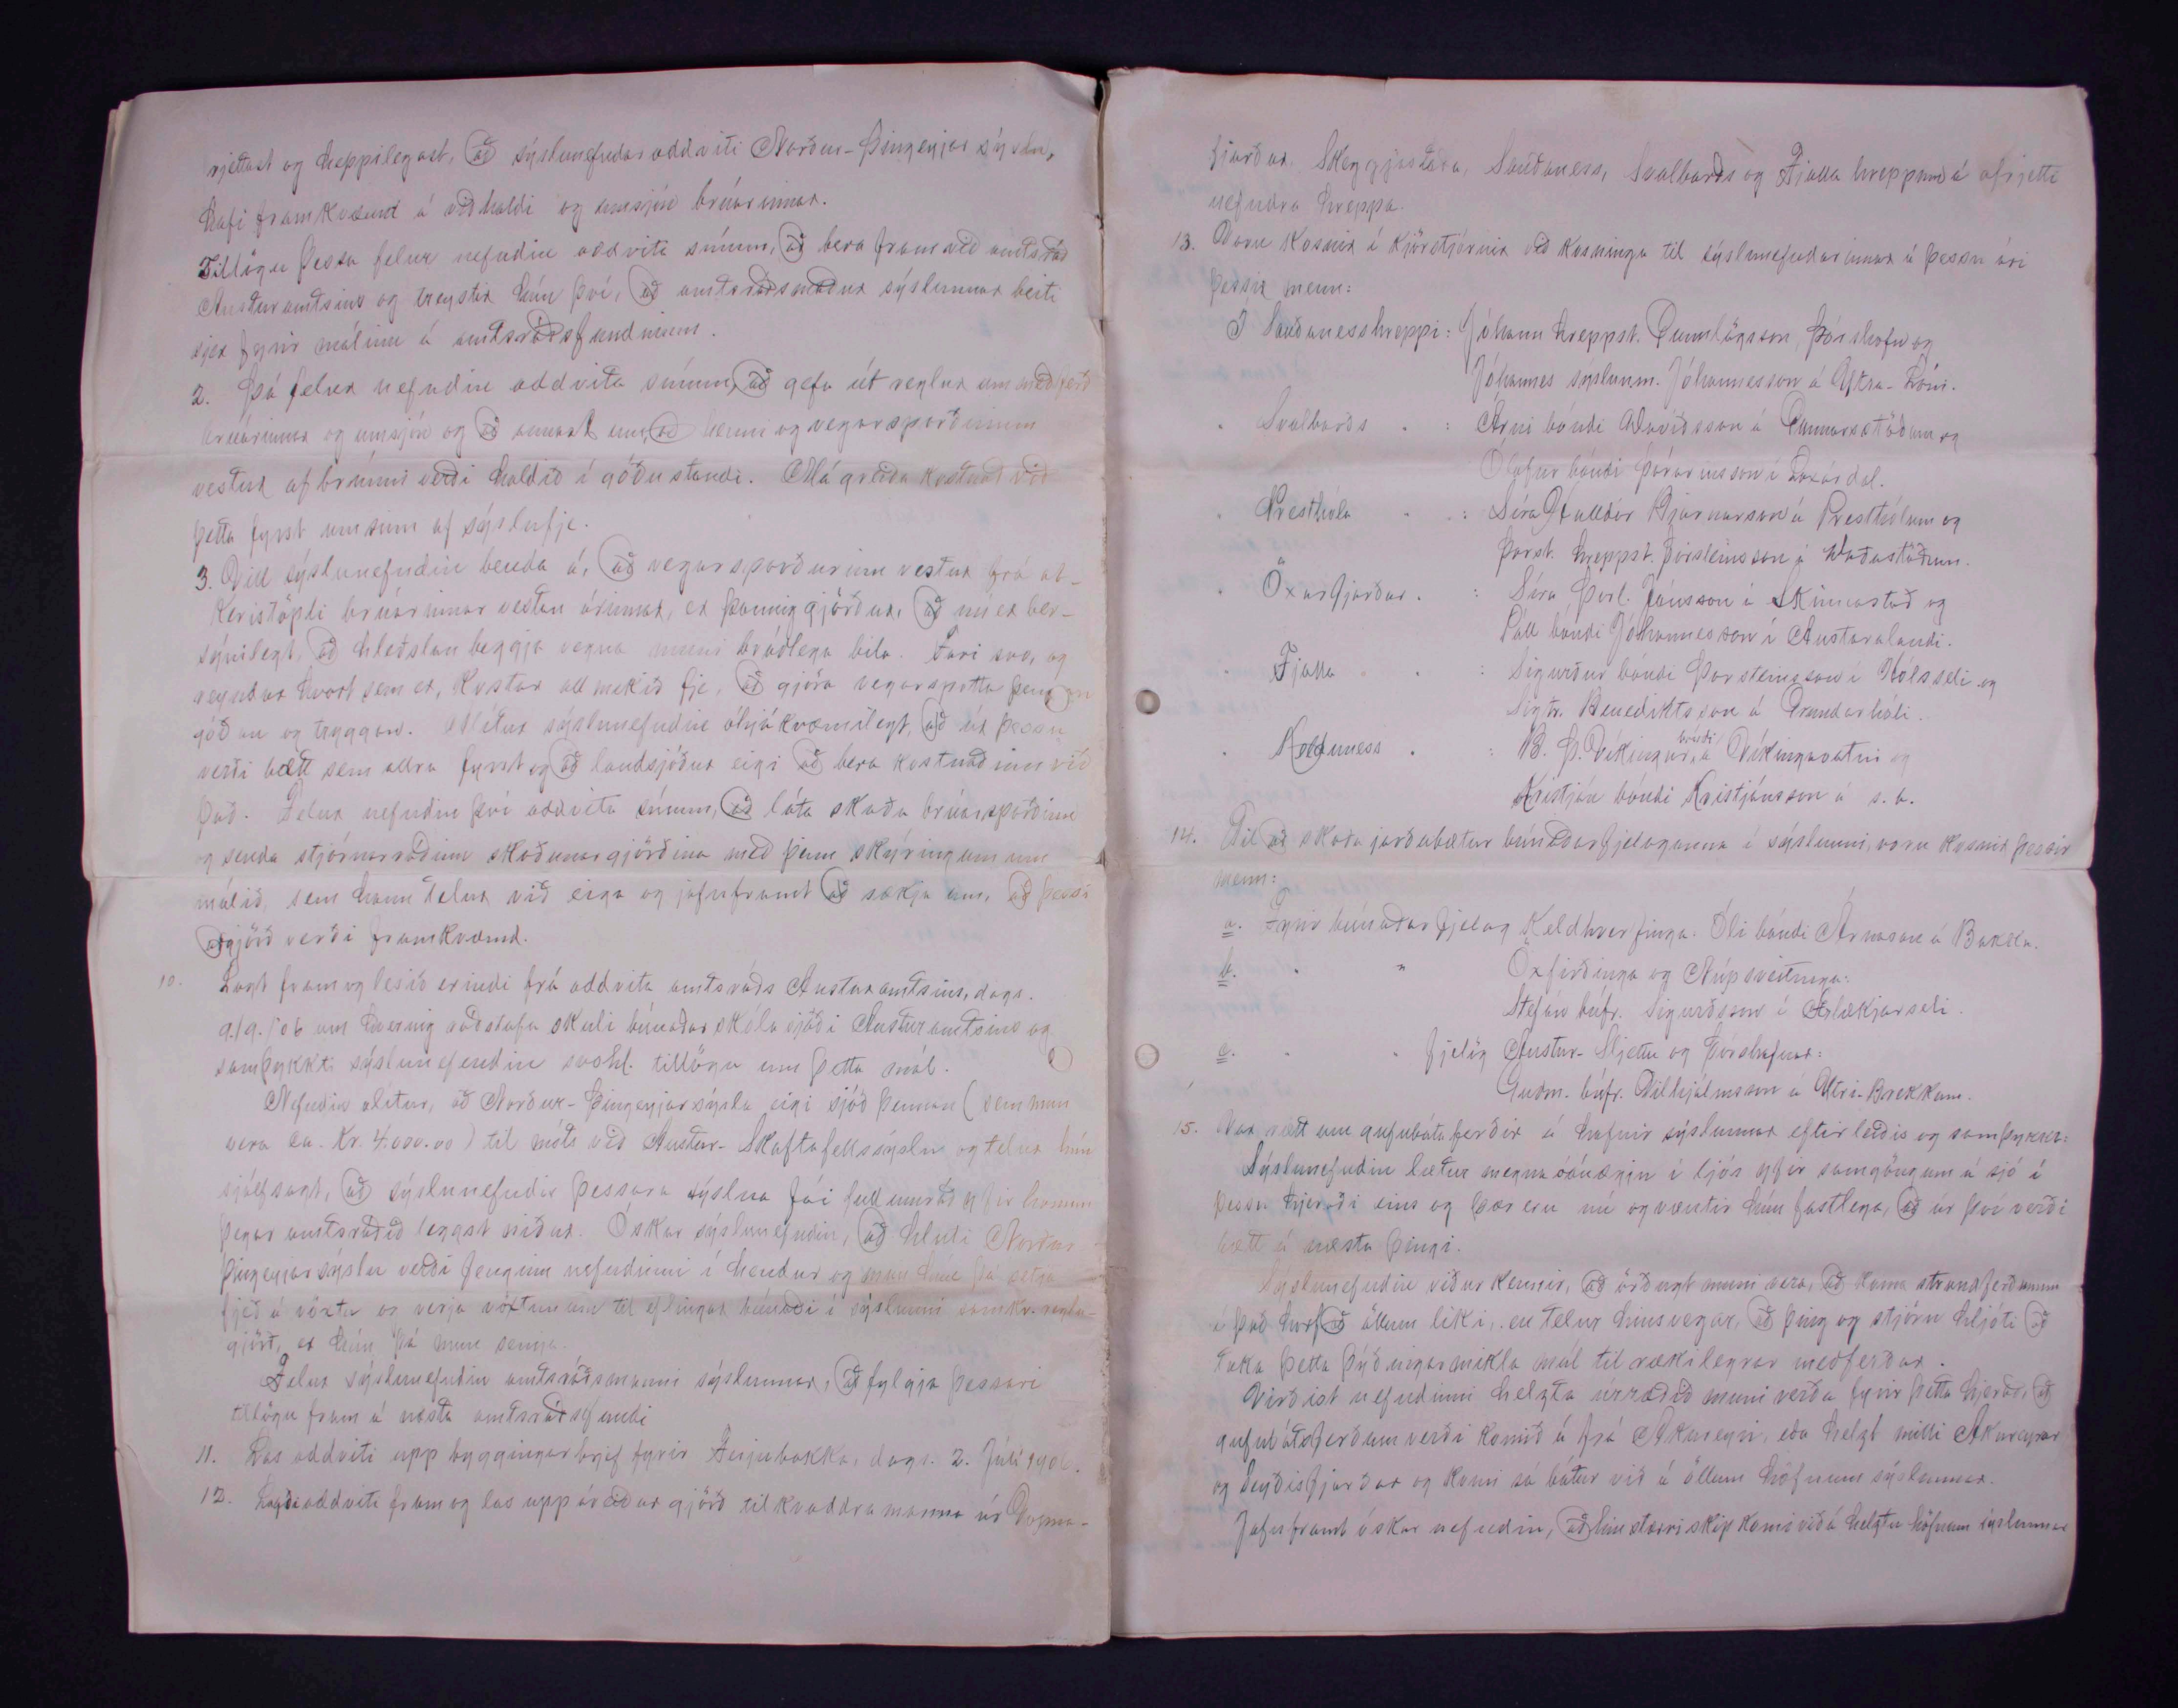 rjettast og heppilegast, að sýslunefndaroddviti Norður-Þingeyjarsýslu,
hafi framkvæmd á viðhaldi og umsjón brúarinnar.
Tillögu þessa felur nefndin oddvita sínum, að bera fram við amtsráð
Austuramtsins og treystir hún því, að amtsráðsmaður sýslunnar beiti
sjer fyrir málinu á amtsráðsfundinum.
2. Þá felur nefndin oddvita sínum, að gefa út reglur um meðferð
brúarinnar og umsjón og að annast um, að henni og vegarsporðinum
vestur af brúnni verði haldið í góðu standi. Má greiða kostnað við
þetta fyrst um sinn af sýslufje.
3. Vill sýslunefndin benda á, að vegarsporðurinn vestur frá ak-
keristöpli brúarinnar vestan árinnar, er þannig gjörður, að nú er ber-
sýnilegt, að hleðslan beggja vegna muni bráðlega bila. Fari svo, og
reyndar hvort sem er, kostar all mikið fje, að gjöra vegarspotta þennan
góðan og tryggan. Álítur sýslunefndin óhjákvæmilegt, að úr þessu
verði bætt sem allra fyrst og að landsjóður eigi að bera kostnaðinn við
það. Felur nefndin því oddvita sínum, að láta skoða brúarsporðinn
og senda stjórnarráðinu skoðunargjörðina með þeim skýringum um
málið, sem hann telur við eiga og jafnframt að sækja um, að þessi
aðgjörð verði framkvæmd.
10. Lagt fram og lesið erindi frá oddvita amtsráðs Austuramtsins, dags.
9./9. '06 um hvernig ráðstafa skuli búnaðarskólasjóði Austuramtsins og
samþykkti sýslunefndin svohl. tillögu um þetta mál.
Nefndin álítur, að Norður-Þingeyjarsýsla eigi sjóð þennan (sem mun
vera ca. Kr. 4.000.00) til móts við Austur-Skaftafellssýslu og telur hún
sjálfsagt, að sýslunefndir þessara sýslna fái full umráð yfir honum
þegar amtsráðið leggst niður. Óskar sýslunefndin, að hluti Norður
Þingeyjarsýslu verði fenginn nefndinni í hendur og mun hún þá setja
fjeð á vöxtu og verja vöxtunum til eflingar búnaði í sýslunni samkv. reglu-
gjörð, er hún þá mun semja.
Felur sýslunefndin amtsráðsmanni sýslunnar, að fylgja þessari
tillögu fram á næsta amtsráðsfundi
11. Las oddviti upp byggingarbrjef fyrir Ferjubakka, dags. 2. Júlí 1906.
12. Lagði oddviti fram og las upp áreiðargjörð tilkvaddra manna úr Vopna-
fjarðar, Skeggjastaða, Sauðaness, Svalbarðs og Fjalla hreppum á afrjetti
nefndra hreppa.
13. Voru kosnir í kjörstjórnir við kosningu til sýslunefndarinnar á þessu ári
þessir menn:
Í Sauðanesshreppi: Jóhann hreppst. Gunnlögsson, Þórshöfn og
Jóhannes sýslunm. Jóhannesson á Ytra-Lóni.
" Svalbarðs " : Árni bóndi Davíðsson á Gunnarsstöðum og
Ólafur bóndi Þórarinsson í Laxárdal.
" Presthóla " : Síra Halldór Bjarnarson á Presthólum og
Þorst. hreppst. Þorsteinsson á Daðastöðum.
" Öxarfjarðar " : Síra Þorl. Jónsson á Skinnastað og
Páll bóndi Jóhannesson í Austaralandi.
" Fjalla " : Sigurður bóndi Þorsteinsson í Hólsseli og
Sigtr. Benediktsson á Grundarhóli.
" Kelduness " : B. Þ. Víkingur, bóndi á Víkingavatni og
Kristján bóndi Kristjánsson á s. b.
14. Til að skoða jarðabætur búnaðarfjelaganna í sýslunni, voru kosnir þessir
menn:
a. Fyrir búnaðarfjelag Keldhverfinga. Óli bóndi Árnason á Bakka.
b. " " Öxfirðinga og Núpsveitunga:
Stefán búfr. Sigurðsson í Ærlækjarseli.
c. " " fjelög Austur-Sljettu og Þórshafnar:
Guðm. búfr. Vilhjálmsson á Ytri-Brekkum.
15. Var rætt um gufubátaferðir á hafnir sýslunnar eftirleiðis og samþykkt:
Sýslunefndin lætur megna óánægju í ljós yfir samgöngum á sjó í
þessu hjeraði eins og þær eru nú og væntir hún fastlega, að úr því verði
bætt á næsta þingi.
Sýslunefndin viðurkennir, að örðugt muni vera, að koma strandferðunum
í það horf að öllum líki, en telur hinsvegar, að þing og stjórn hljóti að
taka þetta þýðingarmikla mál til rækilegrar meðferðar.
Virðist nefndinni helzta úrræðið muni verða fyrir þetta hjerað, að
gufubátsferðum verði komið á frá Akureyri, eða helzt milli Akureyrar
og Seyðisfjarðar og komi sá bátur við á öllum höfnum sýslunnar.
Jafnframt óskar nefndin, að hin stærri skip komi við á helztu höfnum sýslunnar